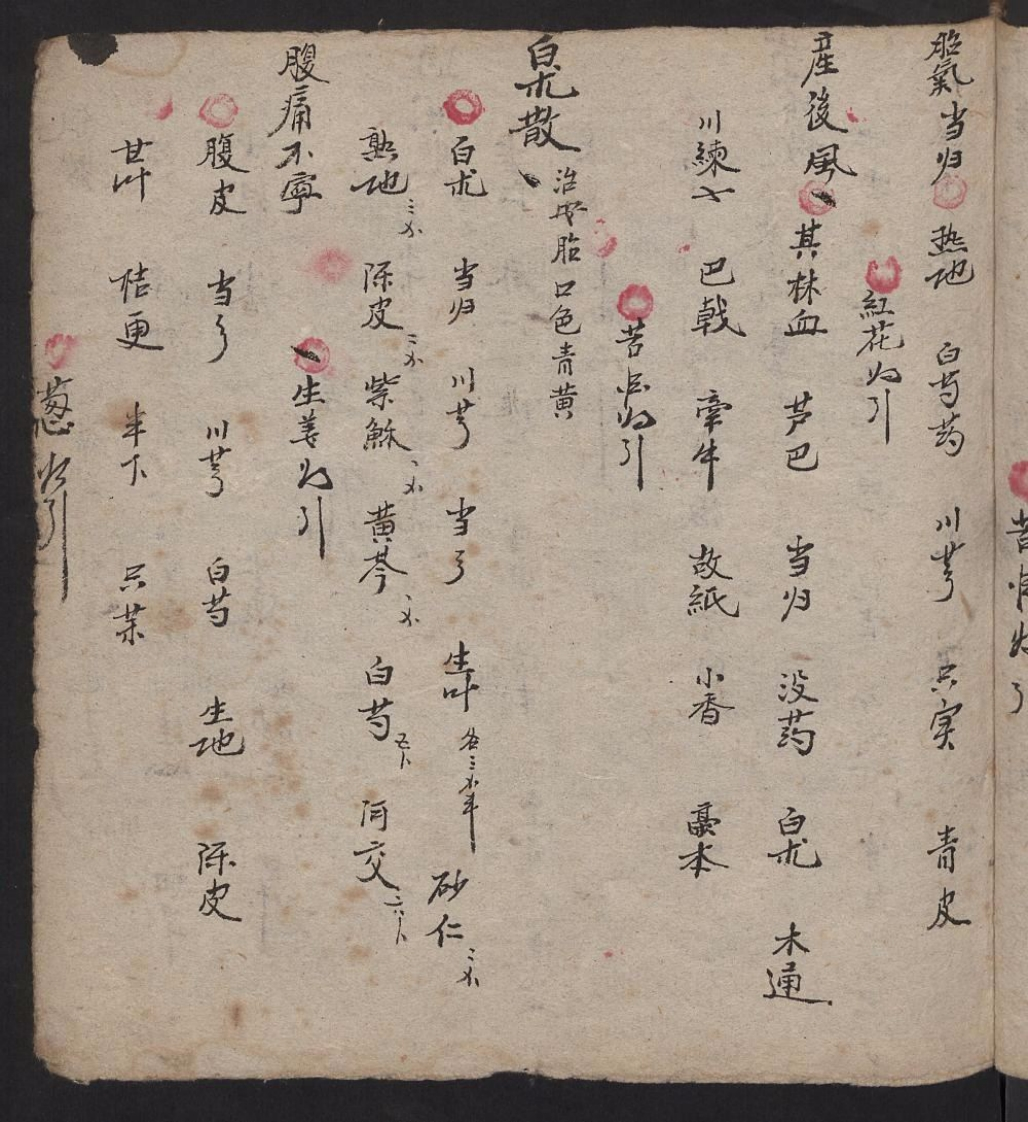 胎氣 当归 热地 白芍药 川芎 只实 青皮
紅花为引
産後風 其林血 芦巴 当归 没药 白朮 木通
川練 巴戟 牵牛 故紙 小香 藁本
苦 为引
白朮散 治安胎口色青黄
白朮 当归 川芎 当 生 各三 半 砂仁 二
熟地 三 陈皮 二 紫穌 黄芩 白芍 五 阿交 六
生姜为引
腹痛不寧
腹皮 当 川芎 白芍 生地 陈皮
甘 桔更 半下 只
葱 为引